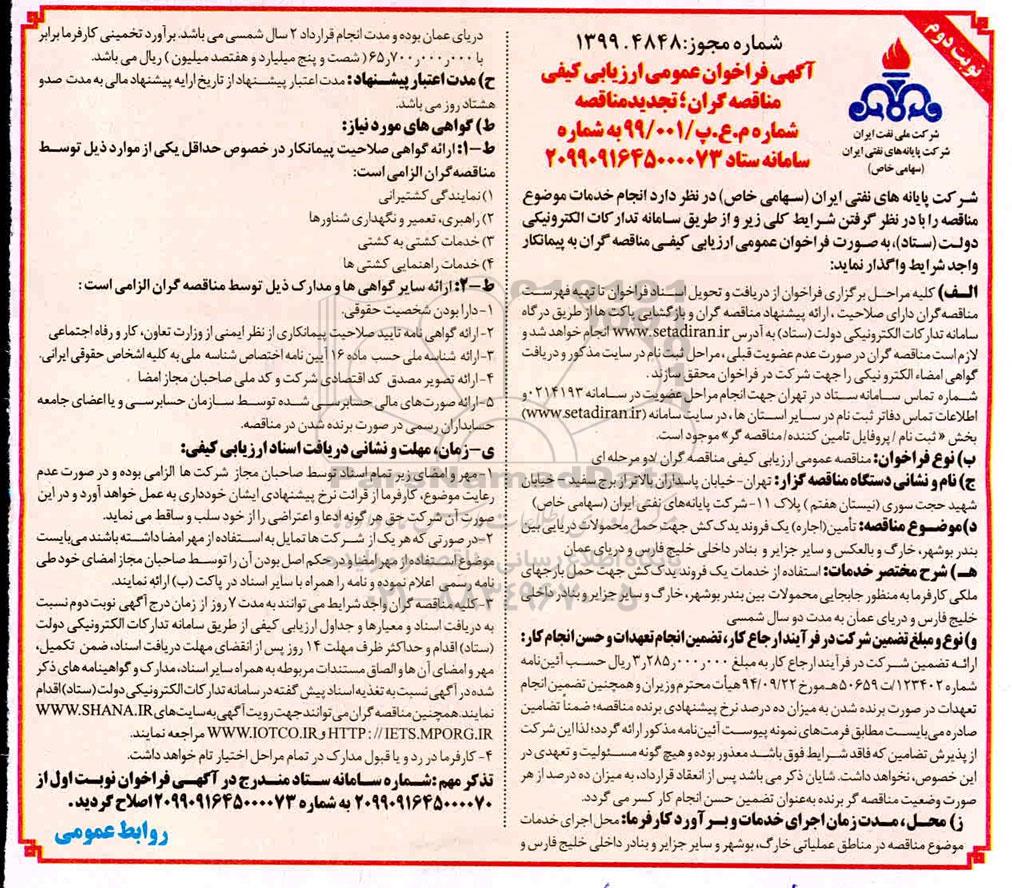 نوبت دوم
شرکت ملی نفت ایران
شرکت پایانه‌های نفتی ایران
(سهامی خاص)
شماره مجوز: ۱۳۹۹.۴۸۴۸
آگهی فراخوان عمومی ارزیابی کیفی
مناقصه گران؛ تجدیدمناقصه
شماره م.ع.پ/۹۹/۰۰۱ به شماره
سامانه ستاد ۲۰۹۹۰۹۱۶۴۵۰۰۰۰۷۳
شرکت پایانه های نفتی ایران (سهامی خاص) در نظر دارد انجام خدمات موضوع
مناقصه را با در نظر گرفتن شرایط کلی زیر و از طریق سامانه تدارکات الکترونیکی
دولت (ستاد)، به صورت فراخوان عمومی ارزیابی کیفی مناقصه گران به پیمانکار
واجد شرایط واگذار نماید:
الف) کلیه مراحل برگزاری فراخوان از دریافت و تحویل اسناد فراخوان تا تهیه فهرست
مناقصه‌گران دارای صلاحیت ، ارائه پیشنهاد مناقصه گران و بازگشایی پاکت ها از طریق درگاه
سامانه تدارکات الکترونیکی دولت (ستاد) به آدرس www.setadiran.ir انجام خواهد شد و
لازم است مناقصه گران در صورت عدم عضویت قبلی ، مراحل ثبت نام در سایت مذکور و دریافت
گواهی امضاء الکترونیکی را جهت شرکت در فراخوان محقق سازند .
شماره تماس سامانه ستاد در تهران جهت انجام مراحل عضویت در سامانه ۰۲۱۴۱۹۳ و
اطلاعات تماس دفاتر ثبت نام در سایر استان ها ، در سایت سامانه (www.setadiran.ir)
بخش « ثبت نام / پروفایل تامین کننده/ مناقصه گر» موجود است.
ب) نوع فراخوان: مناقصه عمومی ارزیابی کیفی مناقصه گران /دو مرحله ای
ج) نام و نشانی دستگاه مناقصه گزار: تهران- خیابان پاسداران بالاتر از برج سفید - خیابان
شهید حجت سوری (نیستان هفتم ) پلاک ۱۱- شرکت پایانه‌های نفتی ایران (سهامی خاص)
د) موضوع مناقصه: تأمین(اجاره) یک فروند یدک کش جهت حمل محصولات دریایی بین
بندر بوشهر، خارگ و بالعکس و سایر جزایر و بنادر داخلی خلیج فارس و دریای عمان
هـ) شرح مختصر خدمات: استفاده از خدمات یک فروند یدک کش جهت حمل بارجهای
ملکی کارفرما به منظور جابجایی محصولات بین بندر بوشهر، خارگ و سایر جزایر و بنادر داخلی
خلیج فارس و دریای عمان به مدت دو سال شمسی
و) نوع و مبلغ تضمین شرکت در فرآیند ارجاع کار، تضمین انجام تعهدات و حسن انجام کار:
ارائه تضمین شرکت در فرآیند ارجاع کار به مبلغ ۳٫۲۸۵٫۰۰۰٫۰۰۰ ریال حسب آئین‌نامه
شماره ۱۲۳۴۰۲/ت ۵۰۶۵۹ هـ مورخ ۹۴/۰۹/۲۲ هیأت محترم وزیران و همچنین تضمین انجام
تعهدات در صورت برنده شدن به میزان ده درصد نرخ پیشنهادی برنده مناقصه؛ ضمناً تضامین
صادره می‌بایست مطابق فرمت‌های نمونه پیوست آئین‌نامه مذکور ارائه گردد؛ لذا این شرکت
از پذیرش تضامین که فاقد شرایط فوق باشد معذور بوده و هیچ گونه مسئولیت و تعهدی در
این خصوص، نخواهد داشت. شایان ذکر می باشد پس از انعقاد قرارداد، به میزان ده درصد از هر
صورت وضعیت مناقصه گر برنده به‌عنوان تضمین حسن انجام کار کسر می گردد.
ز) محل، مدت زمان اجرای خدمات و برآورد کارفرما: محل اجرای خدمات
موضوع مناقصه در مناطق عملیاتی خارگ، بوشهر و سایر جزایر و بنادر داخلی خلیج فارس و
دریای عمان بوده و مدت انجام قرارداد ۲ سال شمسی می باشد. برآورد تخمینی کارفرما برابر
با ۶۵٫۷۰۰٫۰۰۰٫۰۰۰ ( شصت و پنج میلیارد و هفتصد میلیون ) ریال می باشد.
ح) مدت اعتبار پیشنهاد: مدت اعتبار پیشنهاد از تاریخ ارایه پیشنهاد مالی به مدت صد و
هشتاد روز می باشد.
ط) گواهی های مورد نیاز:
ط-۱: ارائه گواهی صلاحیت پیمانکار در خصوص حداقل یکی از موارد ذیل توسط
مناقصه‌گران الزامی است:
۱) نمایندگی کشتیرانی
۲) راهبری، تعمیر و نگهداری شناورها
۳) خدمات کشتی به کشتی
۴) خدمات راهنمایی کشتی ها
ط-۲: ارائه سایر گواهی ها و مدارک ذیل توسط مناقصه گران الزامی است :
۱-دارا بودن شخصیت حقوقی.
۲-ارائه گواهی نامه تایید صلاحیت پیمانکاری از نظر ایمنی از وزارت تعاون، کار و رفاه اجتماعی
۳-ارائه شناسه ملی حسب ماده ۱۶ آیین نامه اختصاص شناسه ملی به کلیه اشخاص حقوقی ایرانی.
۴-ارائه تصویر مصدق کد اقتصادی شرکت و کد ملی صاحبان مجاز امضا .
۵-ارائه صورت‌های مالی حسابرسی شده توسط سازمان حسابرسی و یا اعضای جامعه
حسابداران رسمی در صورت برنده شدن در مناقصه.
ی-زمان، مهلت و نشانی دریافت اسناد ارزیابی کیفی:
۱-مهر و امضای زیر تمام اسناد توسط صاحبان مجاز شرکت ها الزامی بوده و در صورت عدم
رعایت موضوع، کارفرما از قرائت نرخ پیشنهادی ایشان خودداری به عمل خواهد آورد و در این
صورت آن شرکت حق هر گونه ادعا و اعتراضی را از خود سلب و ساقط می نماید.
۲-در صورتی که هر یک از شرکت ها تمایل به استفاده از مهر امضا داشته باشند می‌بایست
موضوع استفاده از مهر امضاو در حکم اصل بودن آن را توسط صاحبان مجاز امضای خود طی
نامه رسمی اعلام نموده و نامه را همراه با سایر اسناد در پاکت (ب) ارائه نمایند.
۳-کلیه مناقصه گران واجد شرایط می توانند به مدت ۷ روز از زمان درج آگهی نوبت دوم نسبت
به دریافت اسناد و معیارها و جداول ارزیابی کیفی از طریق سامانه تدارکات الکترونیکی دولت
(ستاد) اقدام و حداکثر ظرف مهلت ۱۴ روز پس از انقضای مهلت دریافت اسناد، ضمن تکمیل،
مهر و امضای آن ها و الصاق مستندات مربوطه به همراه سایر اسناد، مدارک و گواهینامه های ذکر
شده در آگهی نسبت به تغذیه اسناد پیش گفته در سامانه تدارکات الکترونیکی دولت (ستاد) اقدام
نمایند. همچنین مناقصه گران می توانند جهت رویت آگهی به سایت‌های WWW.SHANA.IR
HTTP://IETS.MPORG.IR و WWW.IOTCO.IR مراجعه نمایند.
۴- کارفرما در رد و یا قبول مدارک در تمام مراحل اختیار تام خواهد داشت.
تذکر مهم :شماره سامانه ستاد مندرج در آگهی فراخوان نوبت اول از
۲۰۹۹۰۹۱۶۴۵۰۰۰۰۷۰ به شماره ۲۰۹۹۰۹۱۶۴۵۰۰۰۰۷۳ اصلاح گردید.
روابط عمومی
ParsNamadData
پایگاه اطلاع رسانی مناقصه و مزایده
۰۲۱-۸۸۳۴۹۶۷۰-۵